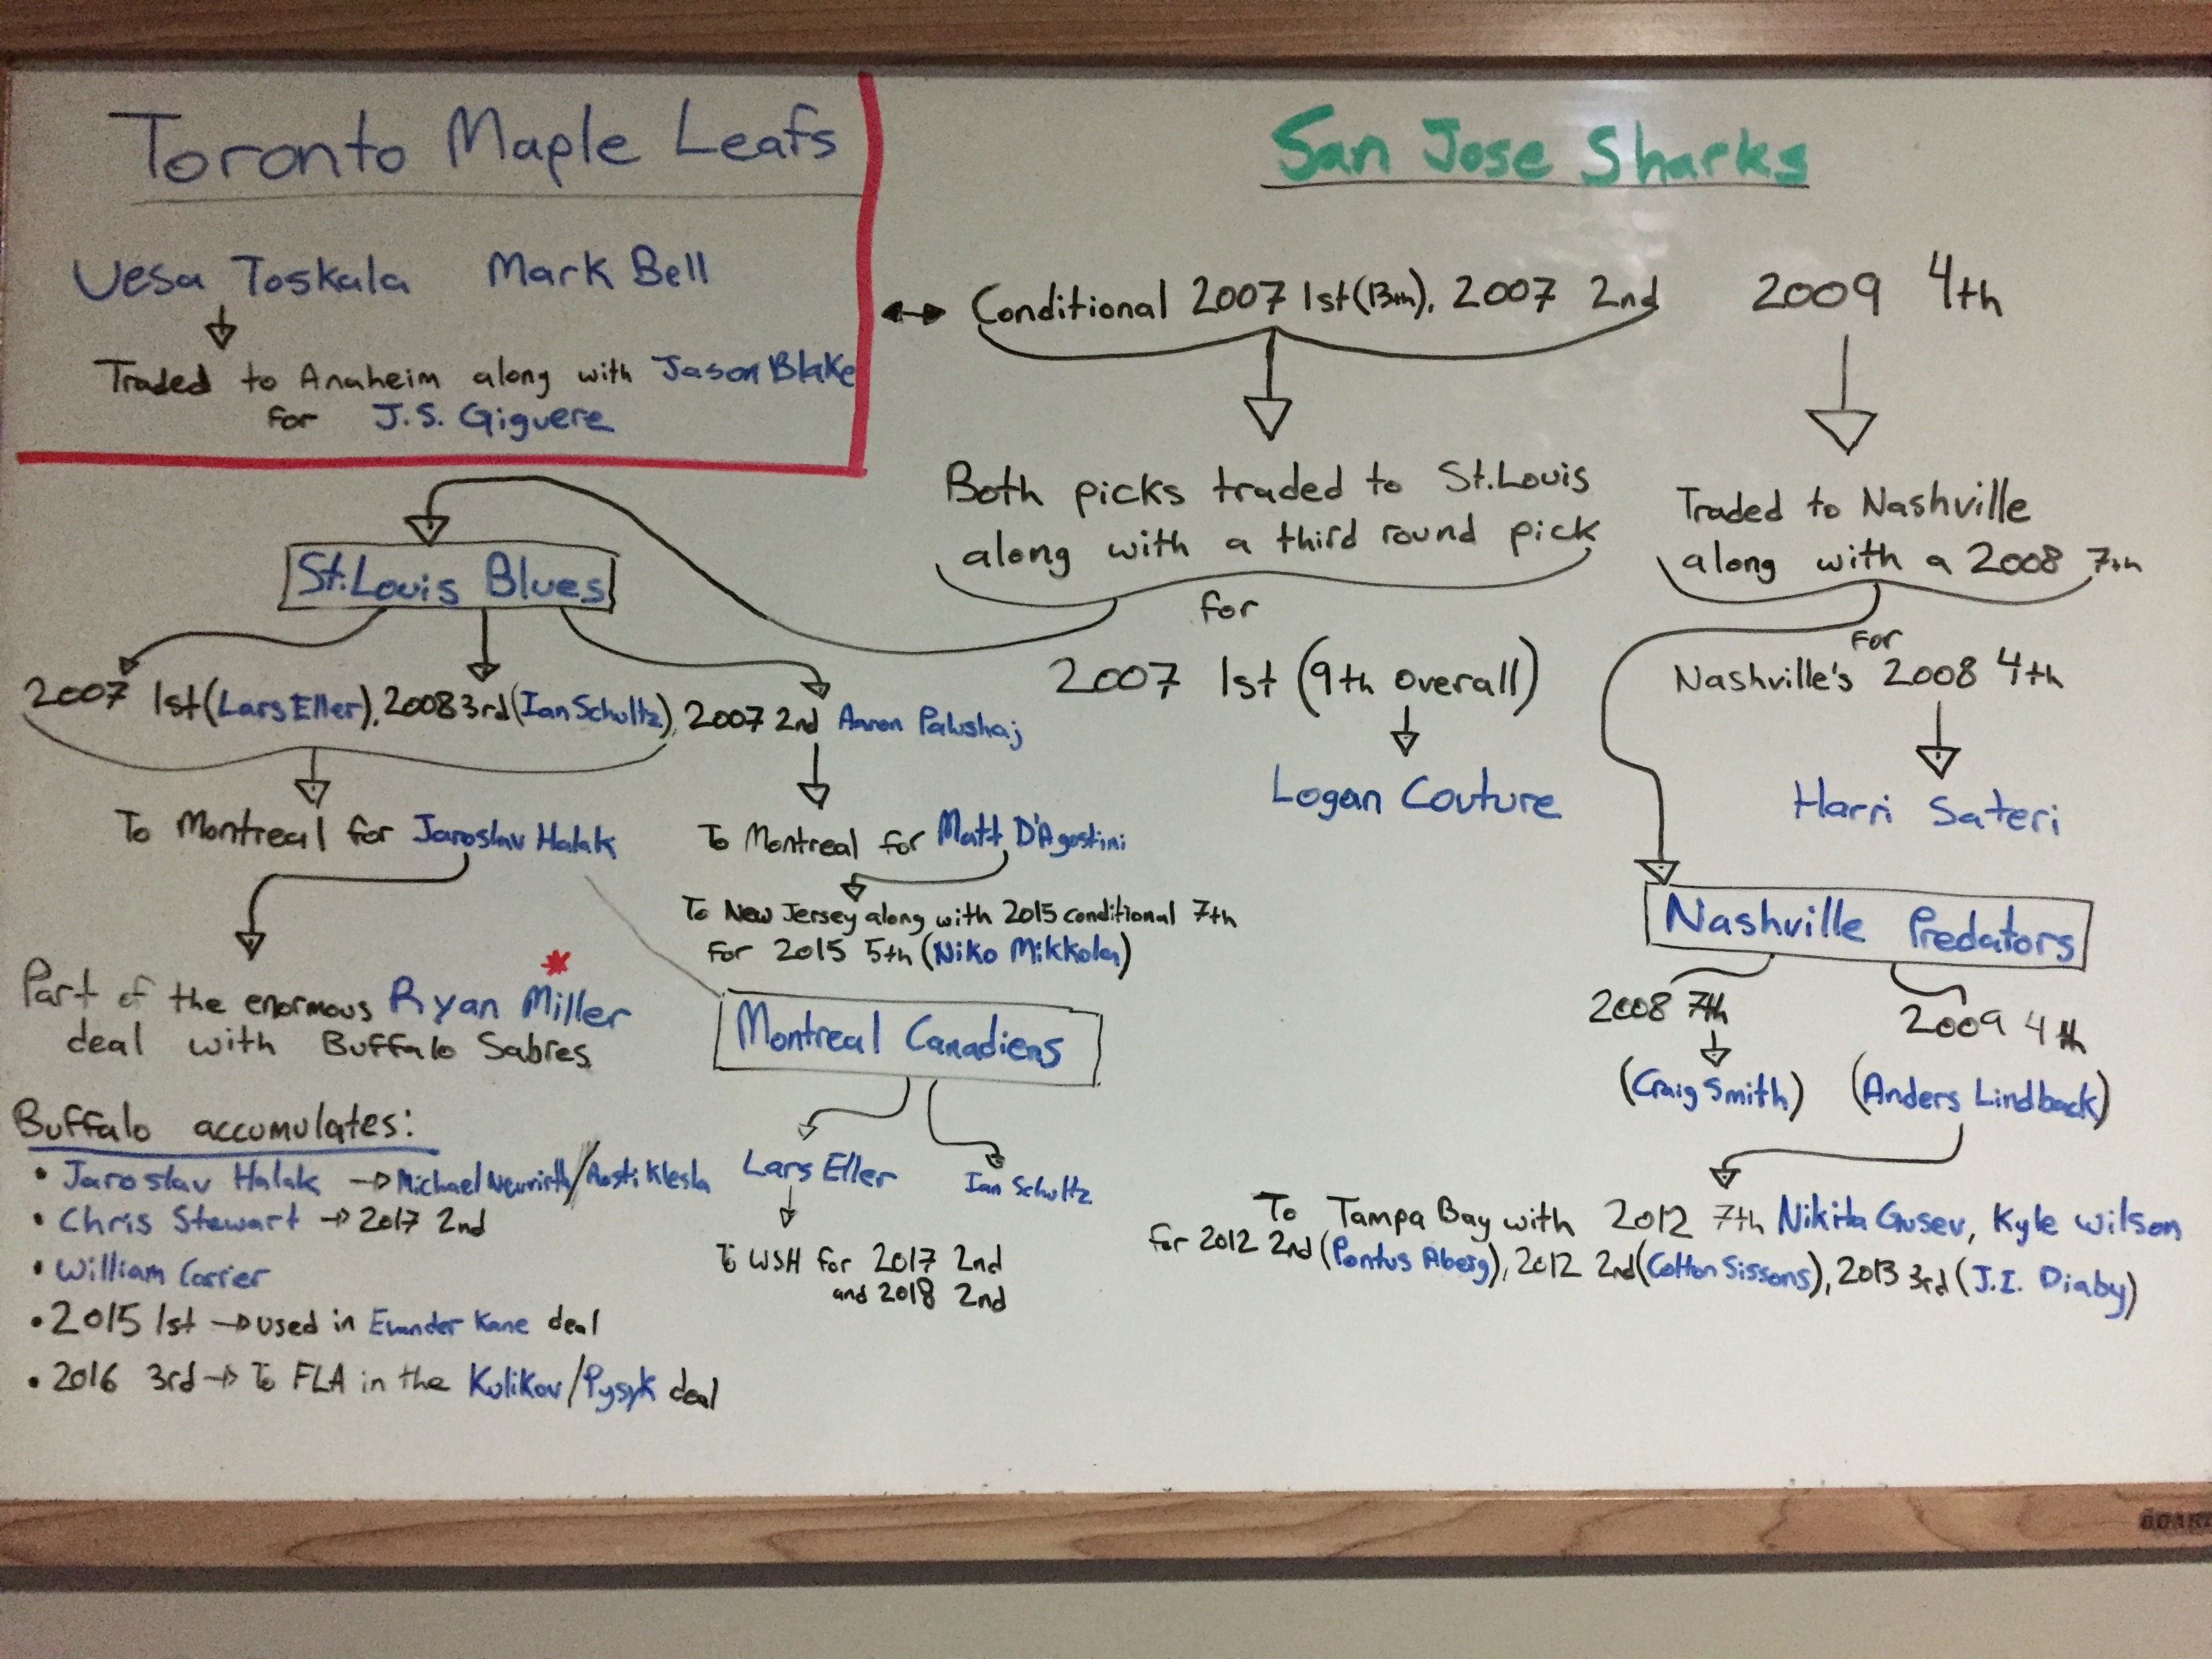 Toronto Maple Leafs
Vesa Toskala Mark Bell
Traded to Anaheim along with Jason Blake
for J.S. Giguere
San Jose Sharks
Conditional 2007 1st (13th), 2007 2nd 2009 4th
Both picks traded to St.Louis
along with a third round pick
for
2007 1st (9th overall)
Logan Couture
Traded to Nashville
along with a 2008 7th
For
Nashville's 2008 4th
Harri Sateri
St.Louis Blues
2007 1st (Lars Eller), 2008 3rd (Ian Schultz), 2007 2nd Aaron Palushaj
To Montreal for Jaroslav Halak
To Montreal for Matt D'Agostini
To New Jersey along with 2015 conditional 7th
for 2015 5th (Niko Mikkola)
Part of the enormous Ryan Miller *
deal with Buffalo Sabres
Buffalo accumulates:
• Jaroslav Halak → Michael Neuvirth/Rosti Klesla
• Chris Stewart → 2017 2nd
• William Carrier
• 2015 1st → used in Evander Kane deal
• 2016 3rd → To FLA in the Kulikov/Pysyk deal
Montreal Canadiens
Lars Eller Ian Schultz
To WSH for 2017 2nd
and 2018 2nd
Nashville Predators
2008 7th 2009 4th
(Craig Smith) (Anders Lindback)
To Tampa Bay with 2012 7th Nikita Gusev, Kyle Wilson
for 2012 2nd (Pontus Aberg), 2012 2nd (Colton Sissons), 2013 3rd (J.I. Diaby)
BOARD